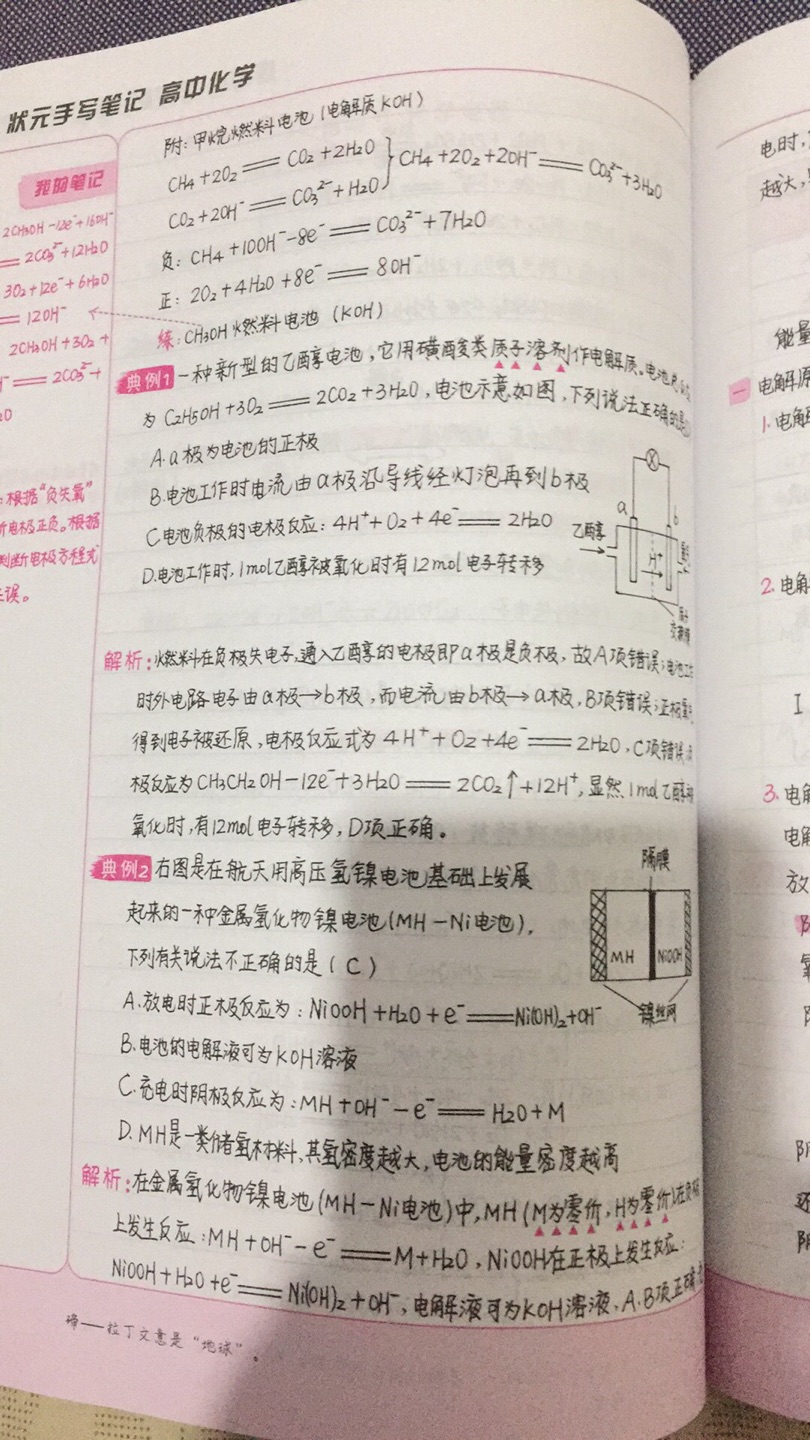 状元手写笔记 高中化学
我的笔记
2CH3OH-12e⁻+16OH⁻
═2CO3²⁻+12H2O
3O2+12e⁻+6H2O
═12OH⁻
2CH3OH+3O2+
═2CO3²⁻+
:根据“负失氧”
断电极正负。根据
判断电极方程式
误。
附:甲烷燃料电池(电解质KOH)
CH4+2O2═CO2+2H2O
CO2+2OH⁻═CO3²⁻+H2O
}CH4+2O2+2OH⁻═CO3²⁻+3H2O
负:CH4+10OH⁻-8e⁻═CO3²⁻+7H2O
正:2O2+4H2O+8e⁻═8OH⁻
练:CH3OH燃料电池(KOH)
典例1 一种新型的乙醇电池,它用磺酸类质子溶剂作电解质。电池
为C2H5OH+3O2═2CO2+3H2O,电池示意如图,下列说法正确的是
A.a极为电池的正极
B.电池工作时电流由a极沿导线经灯泡再到b极
C电池负极的电极反应:4H⁺+O2+4e⁻═2H2O
D.电池工作时,1mol乙醇被氧化时有12mol电子转移
a
b
乙醇
H⁺
交换膜
解析:燃料在负极失电子,通入乙醇的电极即a极是负极,故A项错误;电池工
时外电路电子由a极→b极,而电流由b极→a极,B项错误;正极
得到电子被还原,电极反应式为4H⁺+O2+4e⁻═2H2O,C项错误
极反应为CH3CH2OH-12e⁻+3H2O═2CO2↑+12H⁺,显然1mol乙醇
氧化时,有12mol电子转移,D项正确。
典例2 右图是在航天用高压氢镍电池基础上发展
起来的一种金属氢化物镍电池(MH-Ni电池),
下列有关说法不正确的是(C)
A.放电时正极反应为:NiOOH+H2O+e⁻═Ni(OH)2+OH⁻
B.电池的电解液可为KOH溶液
C.充电时阴极反应为:MH+OH⁻-e⁻═H2O+M
D.MH是一类储氢材料,其氢密度越大,电池的能量密度越高
隔膜
MH
NiOOH
镍丝网
解析:在金属氢化物镍电池(MH-Ni电池)中,MH(M为零价,H为零价)在负
上发生反应:MH+OH⁻-e⁻═M+H2O,NiOOH在正极上发生反应:
NiOOH+H2O+e⁻═Ni(OH)2+OH⁻,电解液可为KOH溶液,A、B项正确
碲——拉丁文意是“地球”。
电时,
越大,
能量
一
电解原
1.电解
2.电解
I
3.电解
电解
放